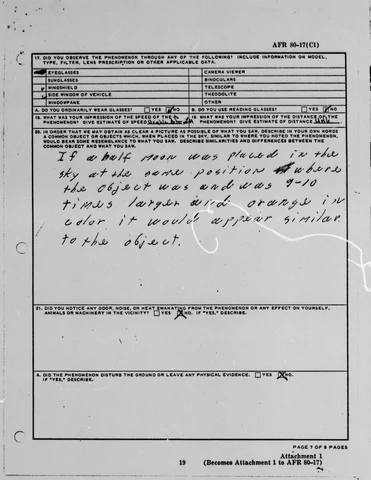 AFR 80-17(C1)
17. DID YOU OBSERVE THE PHENOMENON THROUGH ANY OF THE FOLLOWING? INCLUDE INFORMATION ON MODEL,
TYPE, FILTER, LENS PRESCRIPTION OR OTHER APPLICABLE DATA.
EYEGLASSES CAMERA VIEWER
SUNGLASSES BINOCULARS
WINDSHIELD TELESCOPE
SIDE WINDOW OF VEHICLE THEODOLITE
WINDOWPANE OTHER
A. DO YOU ORDINARILY WEAR GLASSES? YES NO B. DO YOU USE READING GLASSES? YES NO
18. WHAT WAS YOUR IMPRESSION OF THE SPEED OF THE 19. WHAT WAS YOUR IMPRESSION OF THE DISTANCE OF THE
PHENOMENON? GIVE ESTIMATE OF SPEED PHENOMENON? GIVE ESTIMATE OF DISTANCE
20. IN ORDER THAT WE MAY OBTAIN AS CLEAR A PICTURE AS POSSIBLE OF WHAT YOU SAW, DESCRIBE IN YOUR OWN WORDS
A COMMON OBJECT OR OBJECTS WHICH, WHEN PLACED IN THE SKY, SIMILAR TO WHERE YOU NOTED THE PHENOMENON,
WOULD BEAR SOME RESEMBLANCE TO WHAT YOU SAW. DESCRIBE SIMILARITIES AND DIFFERENCES BETWEEN THE
COMMON OBJECT AND WHAT YOU SAW.
If a half moon was placed in the
sky at the same position where
the object was and was 9-10
times larger and orange in
color it would appear similar
to the object.
21. DID YOU NOTICE ANY ODOR, NOISE, OR HEAT EMANATING FROM THE PHENOMENON OR ANY EFFECT ON YOURSELF,
ANIMALS OR MACHINERY IN THE VICINITY? YES NO. IF "YES," DESCRIBE.
A. DID THE PHENOMENON DISTURB THE GROUND OR LEAVE ANY PHYSICAL EVIDENCE. YES NO.
IF "YES," DESCRIBE.
PAGE 7 OF 9 PAGES
Attachment 1
19 (Becomes Attachment 1 to AFR 80-17)